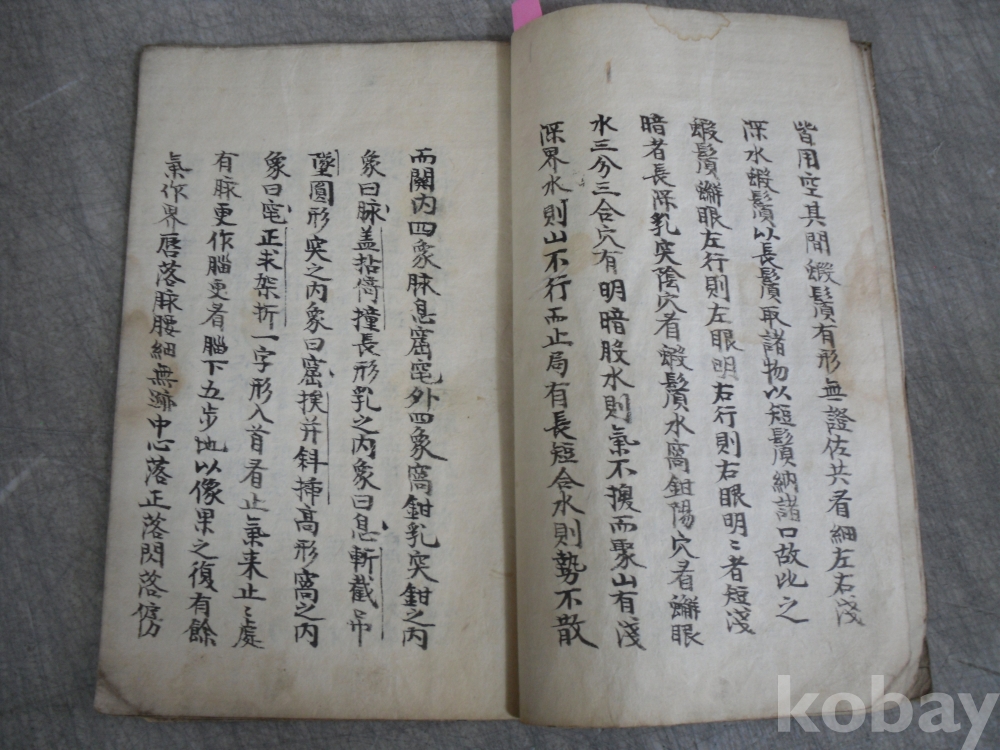 皆用空其間蝦鬚有形無證佐共看細左右淺
深水蝦鬚以長鬚取諸物以短鬚納諸口故比之
蝦鬚蠏眼左行則左眼明右行則右眼明〻者短淺
暗者長深乳突陰穴看蝦鬚水窩鉗陽穴看蠏眼
水三分三合穴有明暗股水則氣不洩而聚山有淺
深界水則山不行而止局有長短合水則勢不散
而關內四象脉息窟窀外四象窩鉗乳突鉗之內
象曰脉盖拈倚撞長形乳之內象曰息斬截吊
墜圓形突之內象曰窟挨并斜揷高形窩之內
象曰窀正求架折一字形入首看止氣來止〻處
有脉更作腦更看腦下五步地以像果之復有餘
氣作界唇落脉腰細無 中心落正落閃落傍
kobay